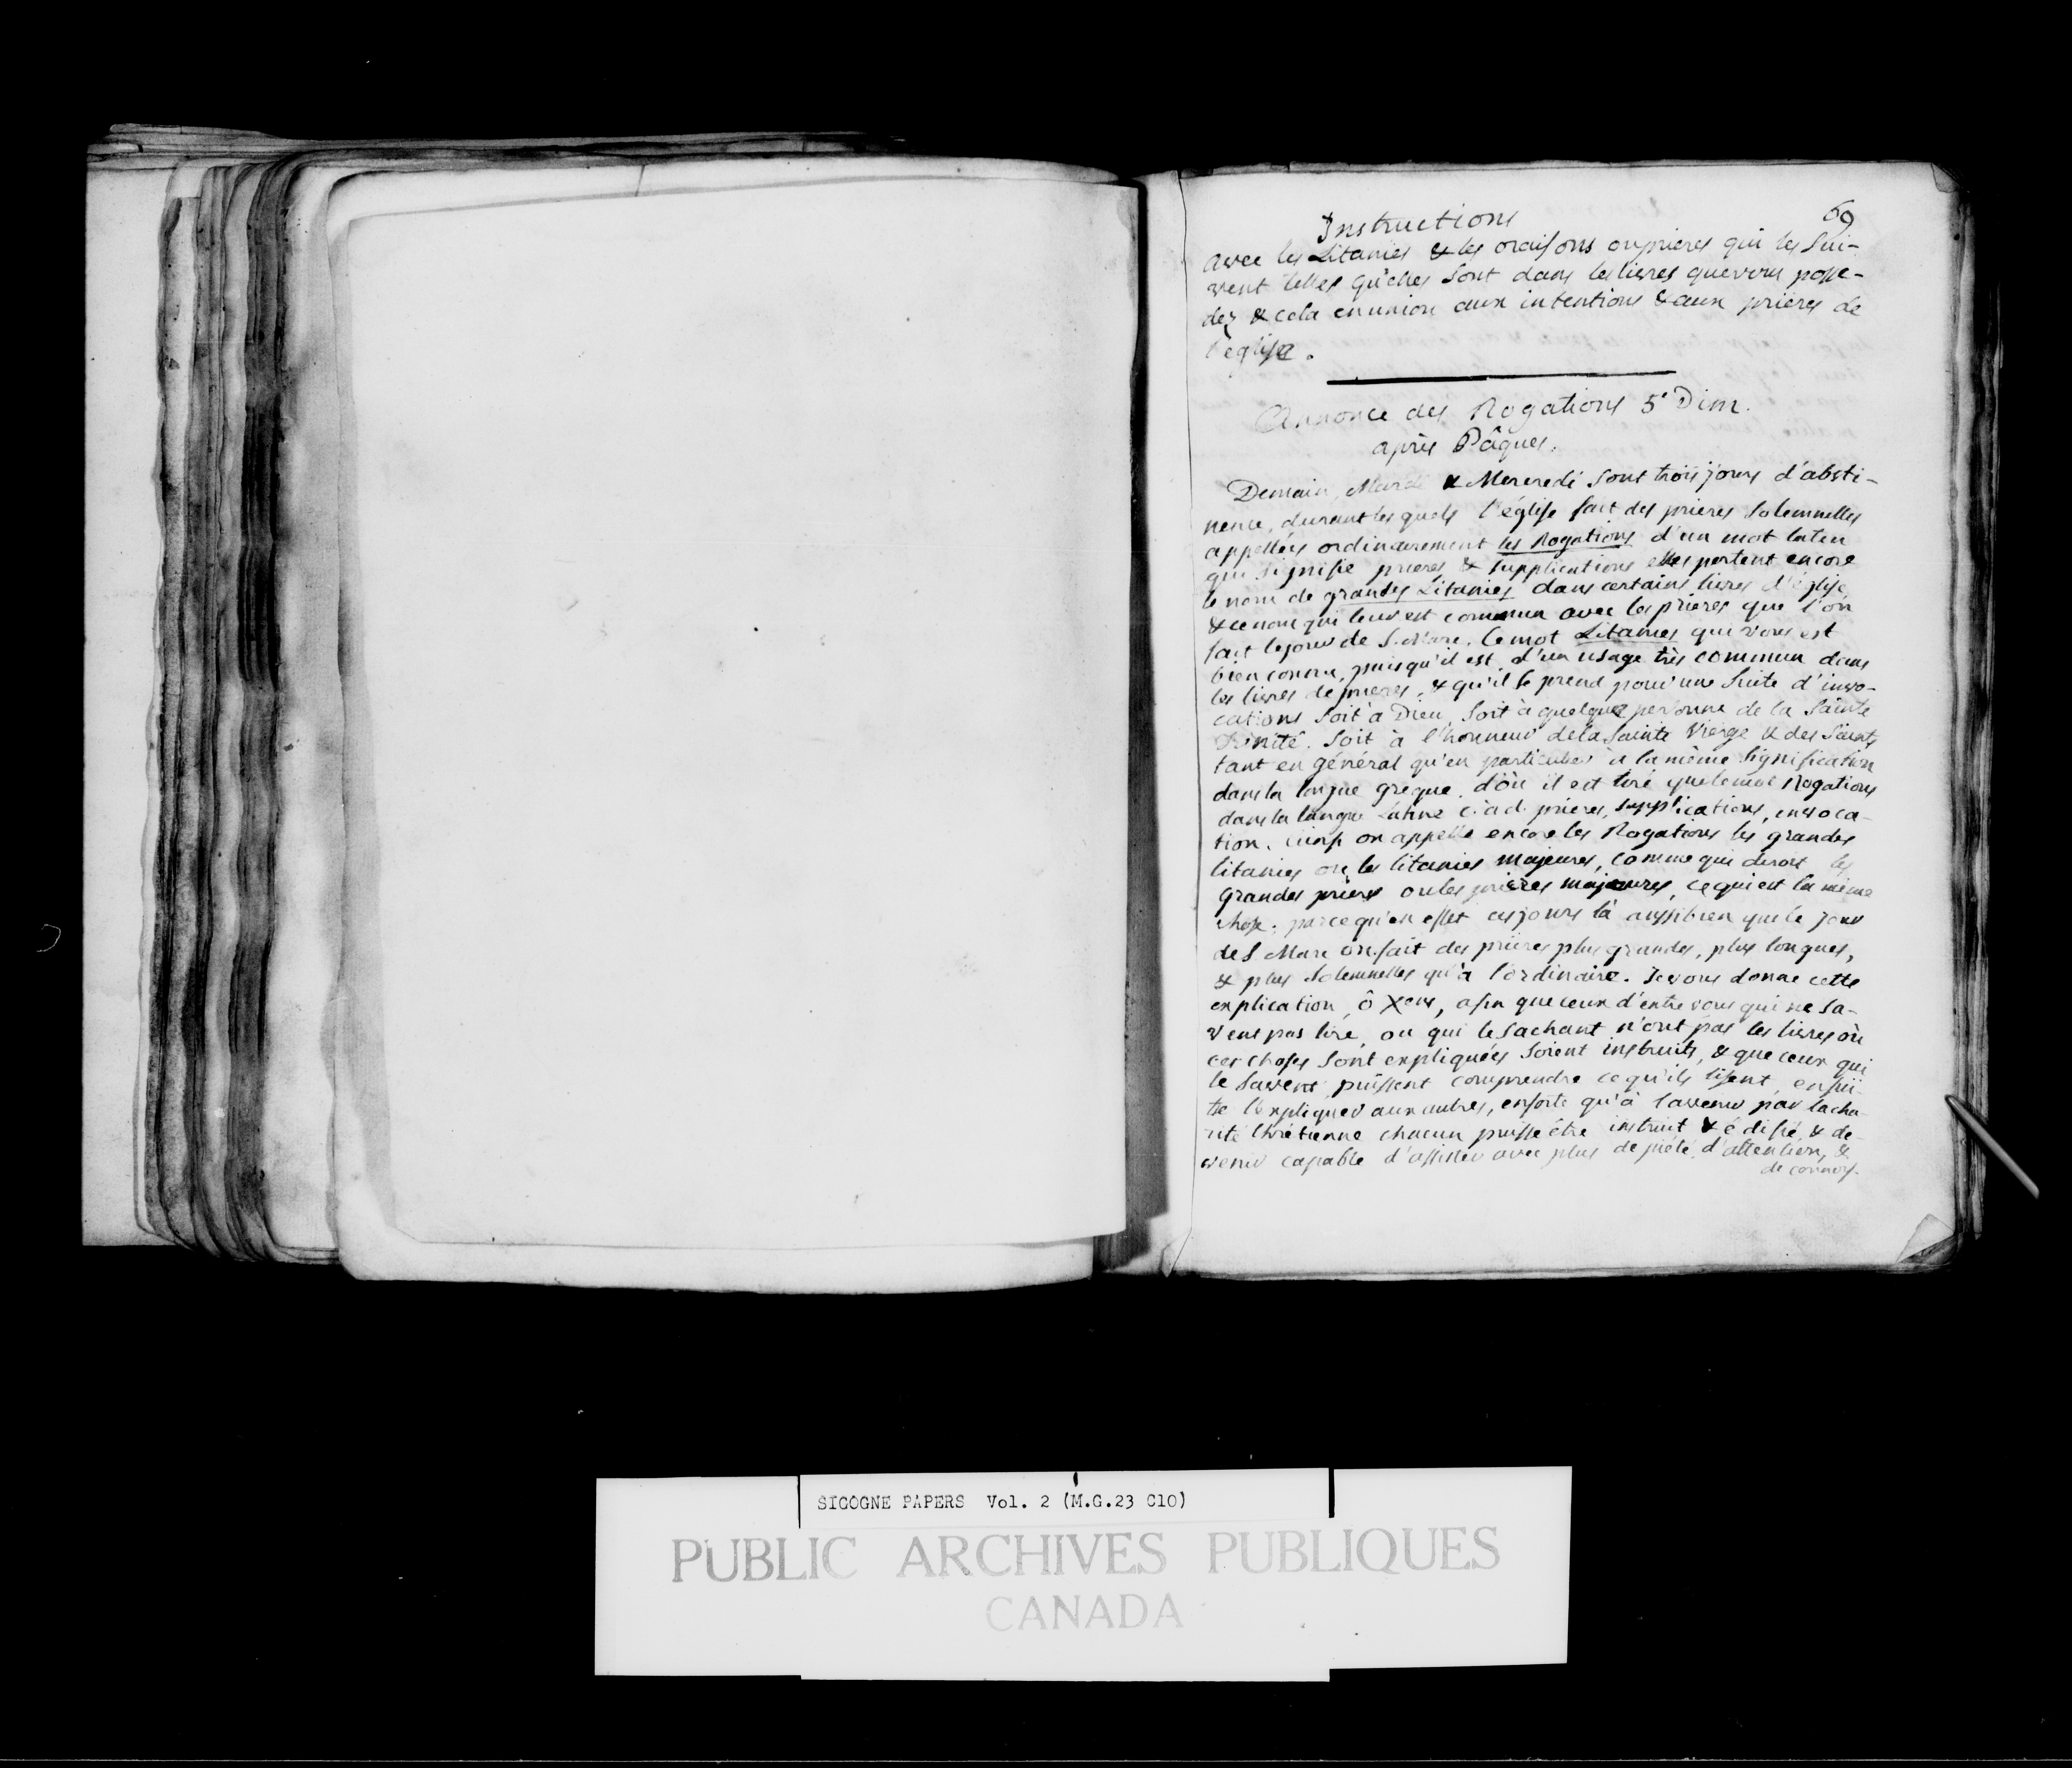 Instructions 69
avec les Litanies & les oraisons ou prieres qui les sui-
vent telles qu'elles sont dans les livres que vous posse-
dez & cela en union aux intentions & aux prières de
l'église.
Annonce des Rogations 5e Dim.
après Pâques.
Demain, Mardi & Mercredi sont trois jours d'absti-
nence, durant lesquels l'église fait des prieres solemnelles
appellées ordinairement les Rogations d'un mot laten
qui signifie prieres & supplications elles portent encore
le nom de grandes Litanies dans certains livres d'église,
& ce nom qui leur est commun avec les prieres que l'on
fait le jour de S. Marc. Ce mot Litanies qui vous est
bien connu, puisqu'il est d'un usage très commun dans
les livres de prieres, & qu'il se prend pour une suite d'invo-
cations soit à Dieu, soit à quelque personne de la Sainte
Trinité. soit à l'honneur de la Sainte Vierge & des Saints
tant en général qu'en particulier a la même signification
dans la langue grèque, d'où il est tiré que le mot Rogations
dans la langue Latine c.àd. prieres, supplications, invoca-
tion. ainsi on appelle encore les Rogations les grandes
litanies ou les litanies majeures, comme qui diroit les
grandes prières ou les prières majeures, ce qui est la même
chose; parce qu'en effet ces jours là aussi bien que le jour
de S. Marc on fait des prieres plus grandes, plus longues,
& plus solemnelles qu'à l'ordinaire. Je vous donne cette
explication, ô Xens, afin que ceux d'entre vous qui ne sa-
vent pas lire, ou qui le sachant n'ont pas les livres où
ces choses sont expliquées soient instruits, & que ceux qui
le savent puissent comprendre ce qu'ils lisent, ensui-
te l'expliquer aux autres, ensorte qu'à l'avenir par la cha-
rité Chrétienne chacun puisse être instruit & édifié, & de-
venir capable d'assister avec plus de piété, d'attention, &
de connois-
SICOGNE PAPERS Vol. 2 (M.G.23 C10)
PUBLIC ARCHIVES PUBLIQUES
CANADA